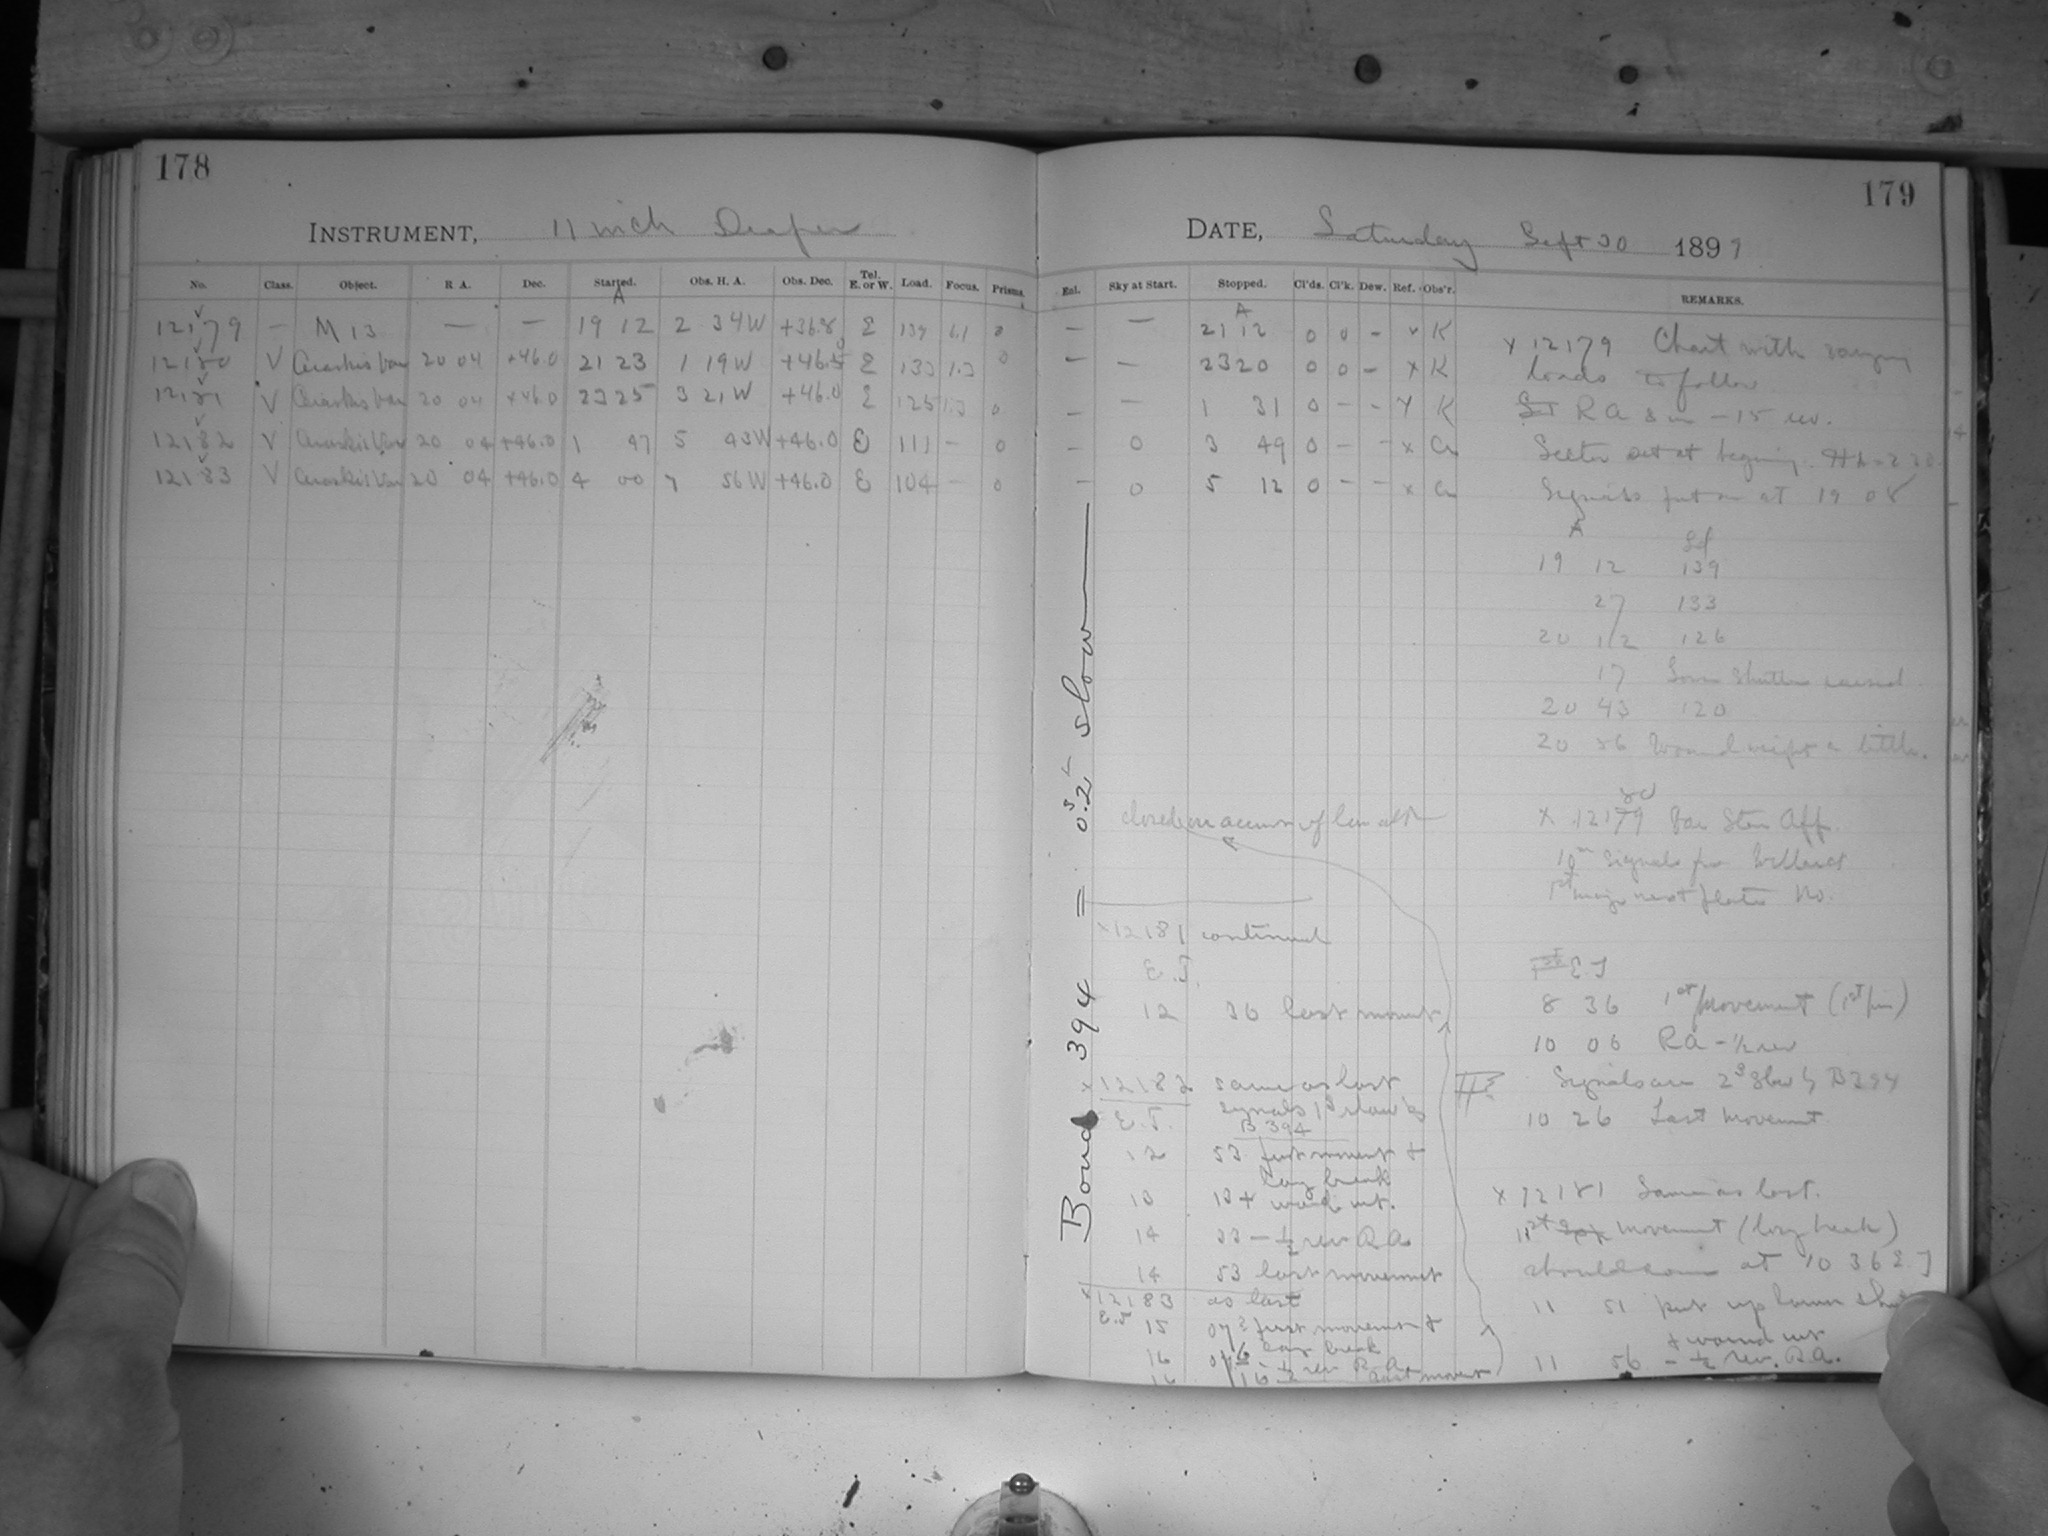 178
INSTRUMENT, 11 inch Draper
No. Class. Object. R A. Dec. Started. Obs. H. A. Obs. Dec. Tel. E. or W. Load. Focus. Prisms.
A
12179 — M 13 — — 19 12 2 34W +36.8 E 139 6.1 0
12180 V Ceraskis Var 20 04 +46.0 21 23 1 19W +46.5 E 133 1.3 0
12181 V Ceraskis Var 20 04 +46.0 23 25 3 21W +46.0 E 125 1.3 0
12182 V Ceraskis Var 20 04 +46.0 1 47 5 43W +46.0 E 111 — 0
12183 V Ceraskis Var 20 04 +46.0 4 00 7 56W +46.0 E 104 — 0
179
DATE, Saturday Sept 30 1899
Enl. Sky at Start. Stopped. Cl'ds. Cl'k. Dew. Ref. Obs'r. REMARKS.
A
— — 21 12 0 0 - x K
— — 23 20 0 0 - x K
— — 1 31 0 - - x K
— 0 3 49 0 - - x
— 0 5 12 0 - - x
x 12179 Chart with varying
loads to follow
R A 8 m - 15 rev.
Signals put on at 19 08
A
19 12 139
27 133
20 12 126
17 Lower Shutter raised
20 43 120
20 56 Wound weight a little.
x 12179 80
10m signals for
next plate No.
E J
8 36 1st movement (1st )
10 06 RA - ½ rev
Signals are 2s slow by B394
10 26 Last movement
x 12181 Same as last.
1st movement (long break)
should come at 10 36 E J
11 51 put up lower
& wound wt
11 56 - ½ rev. R.A.
Bond 394 = 0s.2 slow
closed on account of low alt
x12181 continued
E. J.
12 36 last movmt
x12182 same as last
E. J. signals 1s slow by
B 394
12 53 first movement &
long break
13 13 + wound wt.
14 33 - ½ rev R A
14 53 last movement
x12183 as last
E. J.
15 07 first movement &
long break
16 - ½ rev R.A.
16 16 last movmt